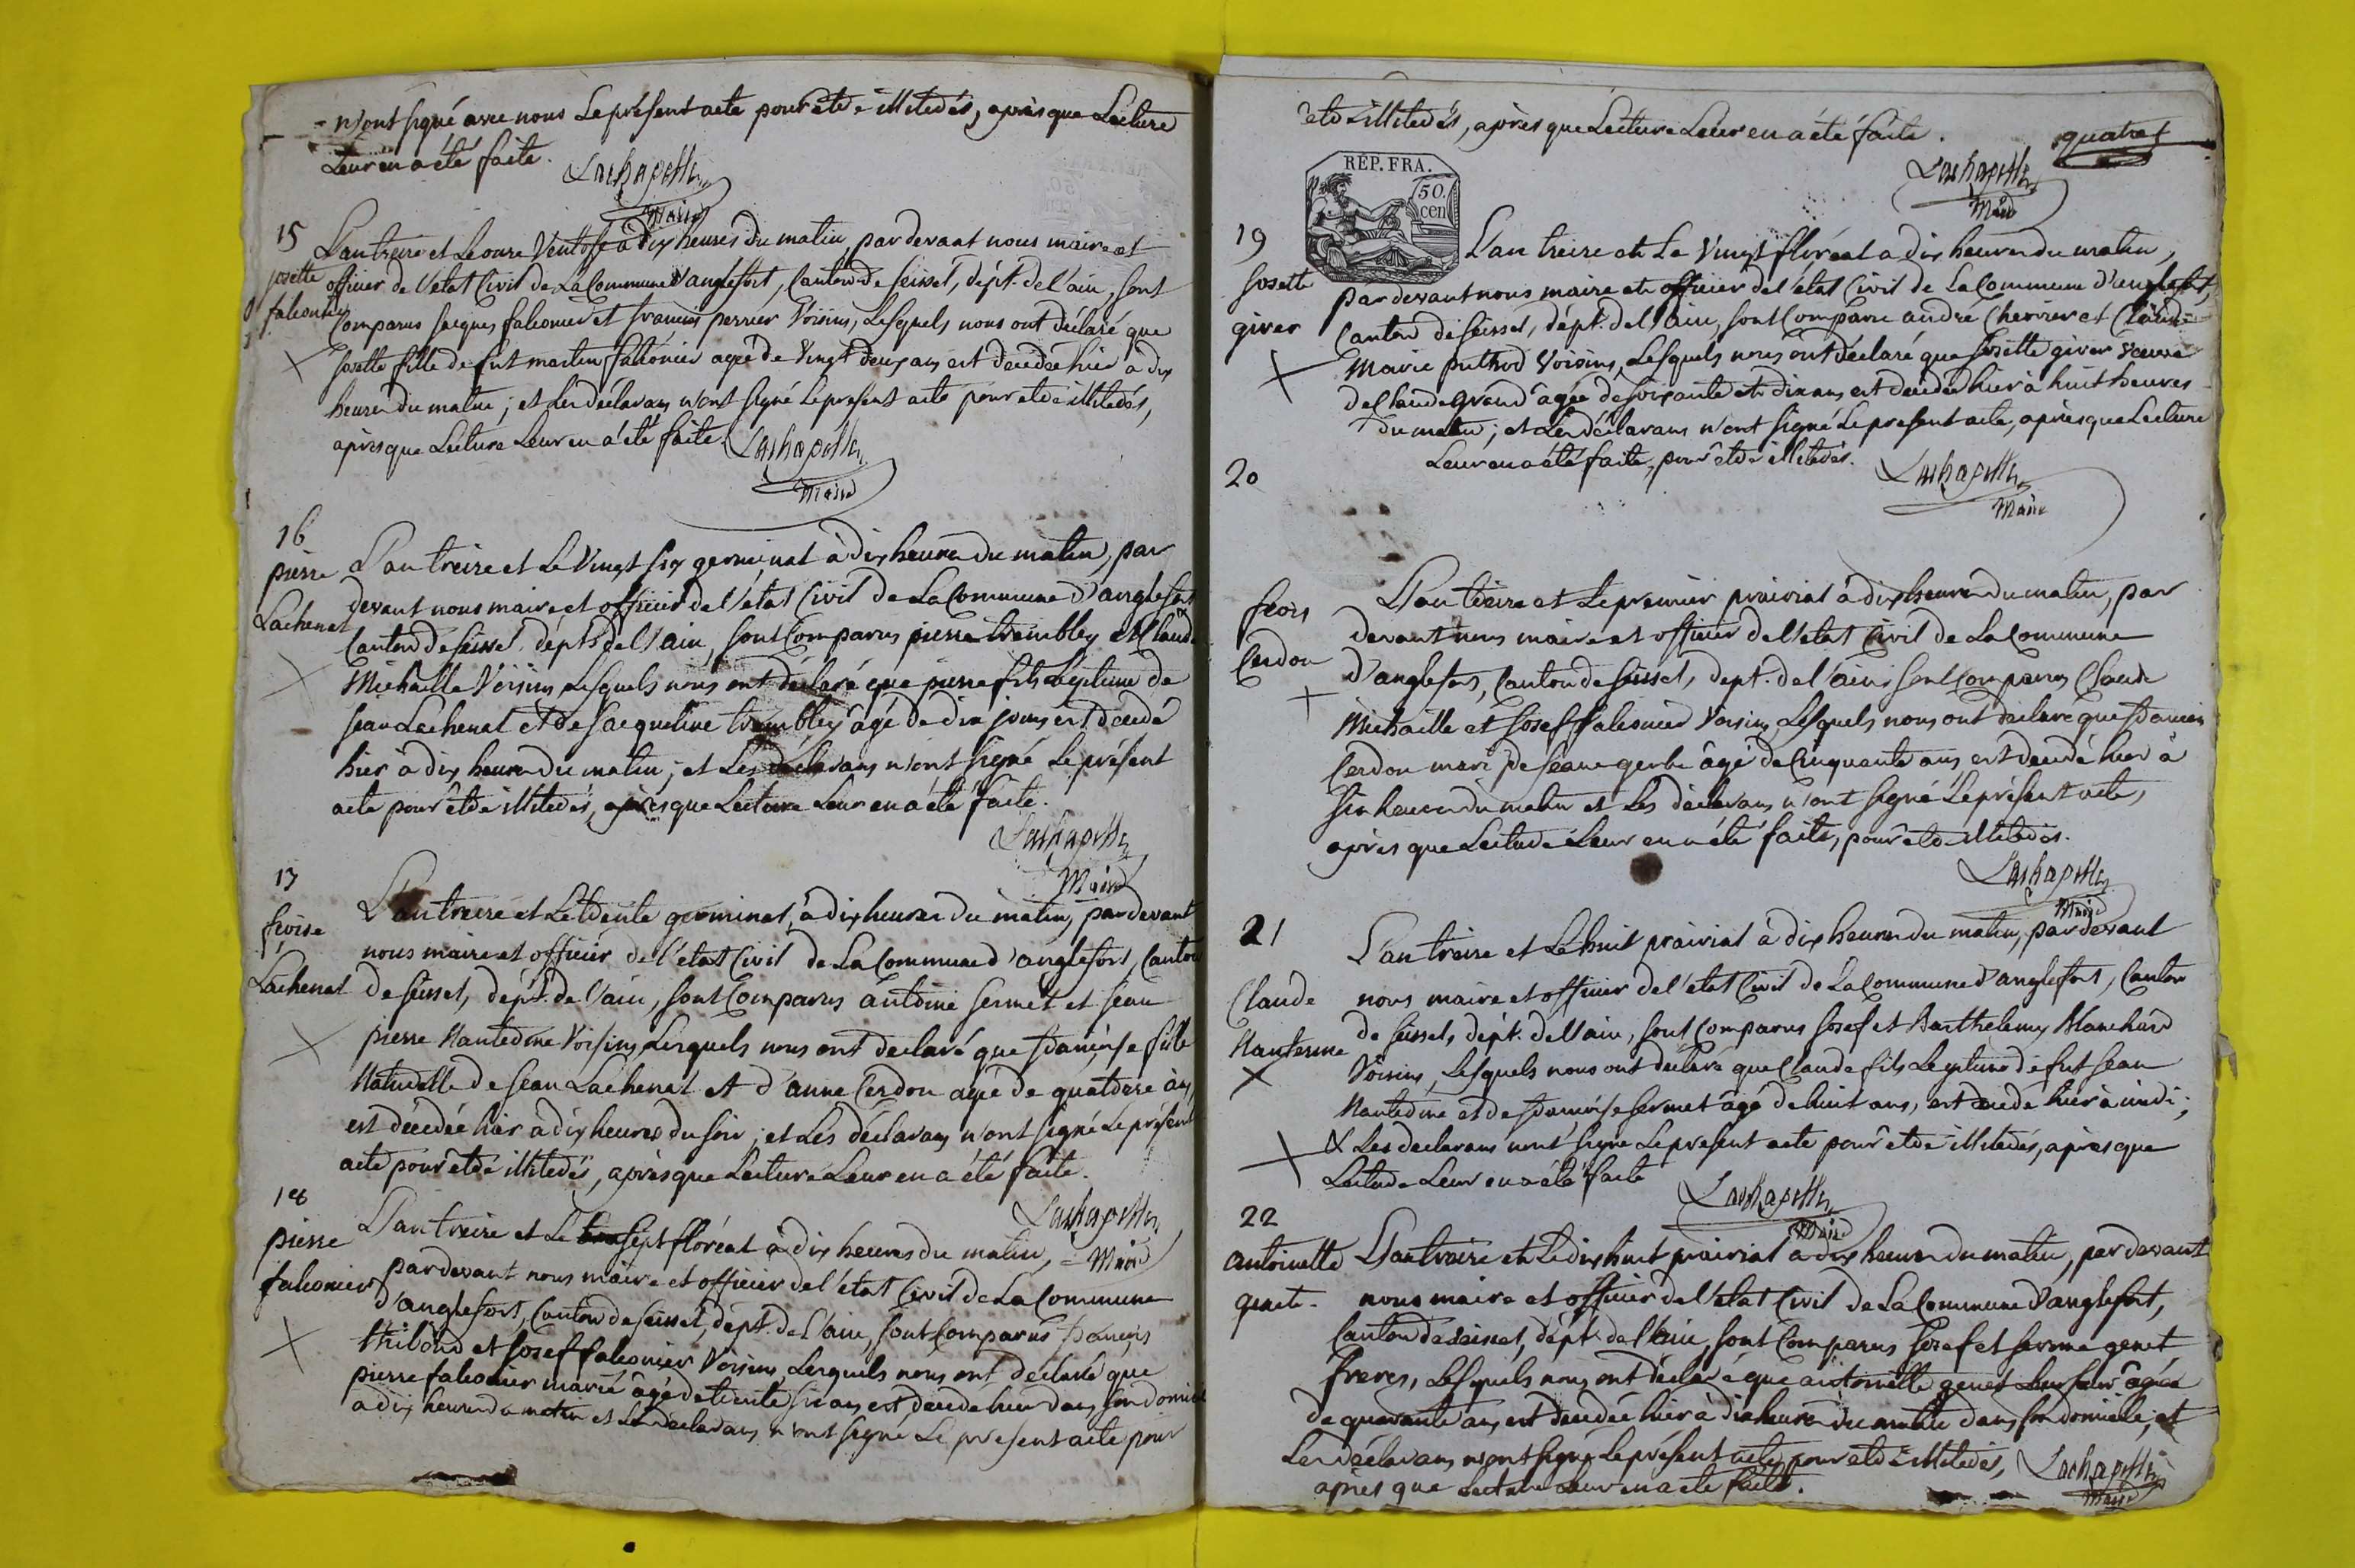 n'ont signé avec nous Le présent acte pour être illiterés, après que Lecture
Leur en a été faite.
Lachapelle
Maire
15
Josette
falconier
L'an treize et Le onze Ventose à dix heures du matin, par devant nous maire et
officier de l'état Civil de La Commune d'anglefort, Canton de seissel, dépt. de l'ain, sont
Comparus jacques falconier et francois perrier Voisins, Lesquels nous ont déclaré que
josette fille de fut martin falconier agée de Vingt deux ans est decedée hier à dix
heures du matin; et Les déclarans n'ont signé Le present acte pour etre illiterés,
après que Lecture Leur en a été faite.
Lachapelle
Maire
16
pierre
Lachenal
L'an treize et Le Vingt six germinal à dix heures du matin, par
devant nous maire et officier de l'état Civil de La Commune d'anglefort
Canton de seissel, dépt. de l'ain, sont Comparus pierre trembley et Claude
Michaille Voisins Lesquels nous ont déclaré que pierre fils Légitime de
jean Lachenal et de jacqueline trembley âgé de dix jours est decedé
hier à dix heures du matin; et Les déclarans n'ont signé Le présent
acte pour être illiterés, après que Lecture Leur en a été faite.
Lachapelle
Maire
17
froise
Lachenal
L'an treize et Le trente germinal, à dix heures du matin, par devant
nous maire et officier de l'état Civil de La Commune d'anglefort, Canton
de seissel, dépt. de l'ain, sont Comparus antoine sermet et jean
pierre Nanterme Voisins Lesquels nous ont declaré que francoise fille
Naturelle de jean Lachenal et d'anne Cerdon agée de quatorze ans,
est décedée hier à dix heures du soir; et Les déclarans n'ont signé Le présent
acte pour être illiterés, après que Lecture Leur en a été faite.
Lachapelle
Maire
18
pierre
falconier
L'an treize et Le sept floréal à dix heures du matin,
par devant nous maire et officier de l'état Civil de La Commune
d'anglefort, Canton de seissel, dépt. de l'ain, sont Comparus francois
thiboud et Josef falconier Voisins Lesquels nous ont declaré que
pierre falconier marié âgé de trente six ans, est decedé hier dans son domicile
à dix heures du matin et Les declarans n'ont signé Le present acte pour
etre illiterés, après que Lecture Leur en a été faite.
quatre
Lachapelle
Maire
RÉP. FRA.
50.
cen
19
Josette
giver
L'an treize et Le Vingt floréal à dix heures du matin,
par devant nous maire et officier de l'état Civil de La Commune d'anglefort,
Canton de seissel, dépt. de l'ain, sont Comparu andre Cherrier et Claude
Marie puthod Voisins, Lesquels nous ont déclaré que Josette giver veuve
de Claude grand âgée de soixante et dix ans est decedée hier à huit heures
du matin; et Les déclarans n'ont signé Le present acte, après que Lecture
Leur en a été faite, pour etre illiterés.
Lachapelle
Maire
20
frois
Cerdon
L'an treize et Le premier prairial à dix heures du matin, par
devant nous maire et officier de l'etat Civil de La Commune
d'anglefort, Canton de seissel, dept. de l'ain, sont Comparus Claude
Michaille et Josef falconier Voisins, Lesquels nous ont declaré que francois
Cerdon mari de jeanne gerbe âgé de Cinquante ans, est decedé hier à
six heures du matin et Les déclarans n'ont signé Le présent acte,
après que Lecture Leur en a été faite, pour etre illiterés.
Lachapelle
Maire
21
Claude
Nanterme
L'an treize et Le huit prairial à dix heures du matin, par devant
nous maire et officier de l'état Civil de La Commune d'anglefort, Canton
de seissel, dépt. de l'ain, sont Comparus Josef et Barthelemy Blanchard
Voisins, Lesquels nous ont declaré que Claude fils Legitime de fut jean
Nanterme et de francoise sermet âgé de huit ans, est decedé hier à midi;
et Les declarans n'ont signé Le present acte pour etre illiterés, après que
Lecture Leur en a été faite
Lachapelle
Maire
22
antoinette
genet.
L'an treize et Le dix huit prairial à dix heures du matin, par devant
nous maire et officier de l'état Civil de La Commune d'anglefort,
Canton de seissel, dépt. de l'ain, sont Comparus Josef et genet
freres, Lesquels nous ont déclaré que antoinette genet Leur seur âgée
de quarante ans, est decedée hier à dix heures du matin dans son domicile; et
Les déclarans n'ont signé Le présent acte, pour etre illiterés,
après que Lecture Leur en a été faite.
Lachapelle
Maire